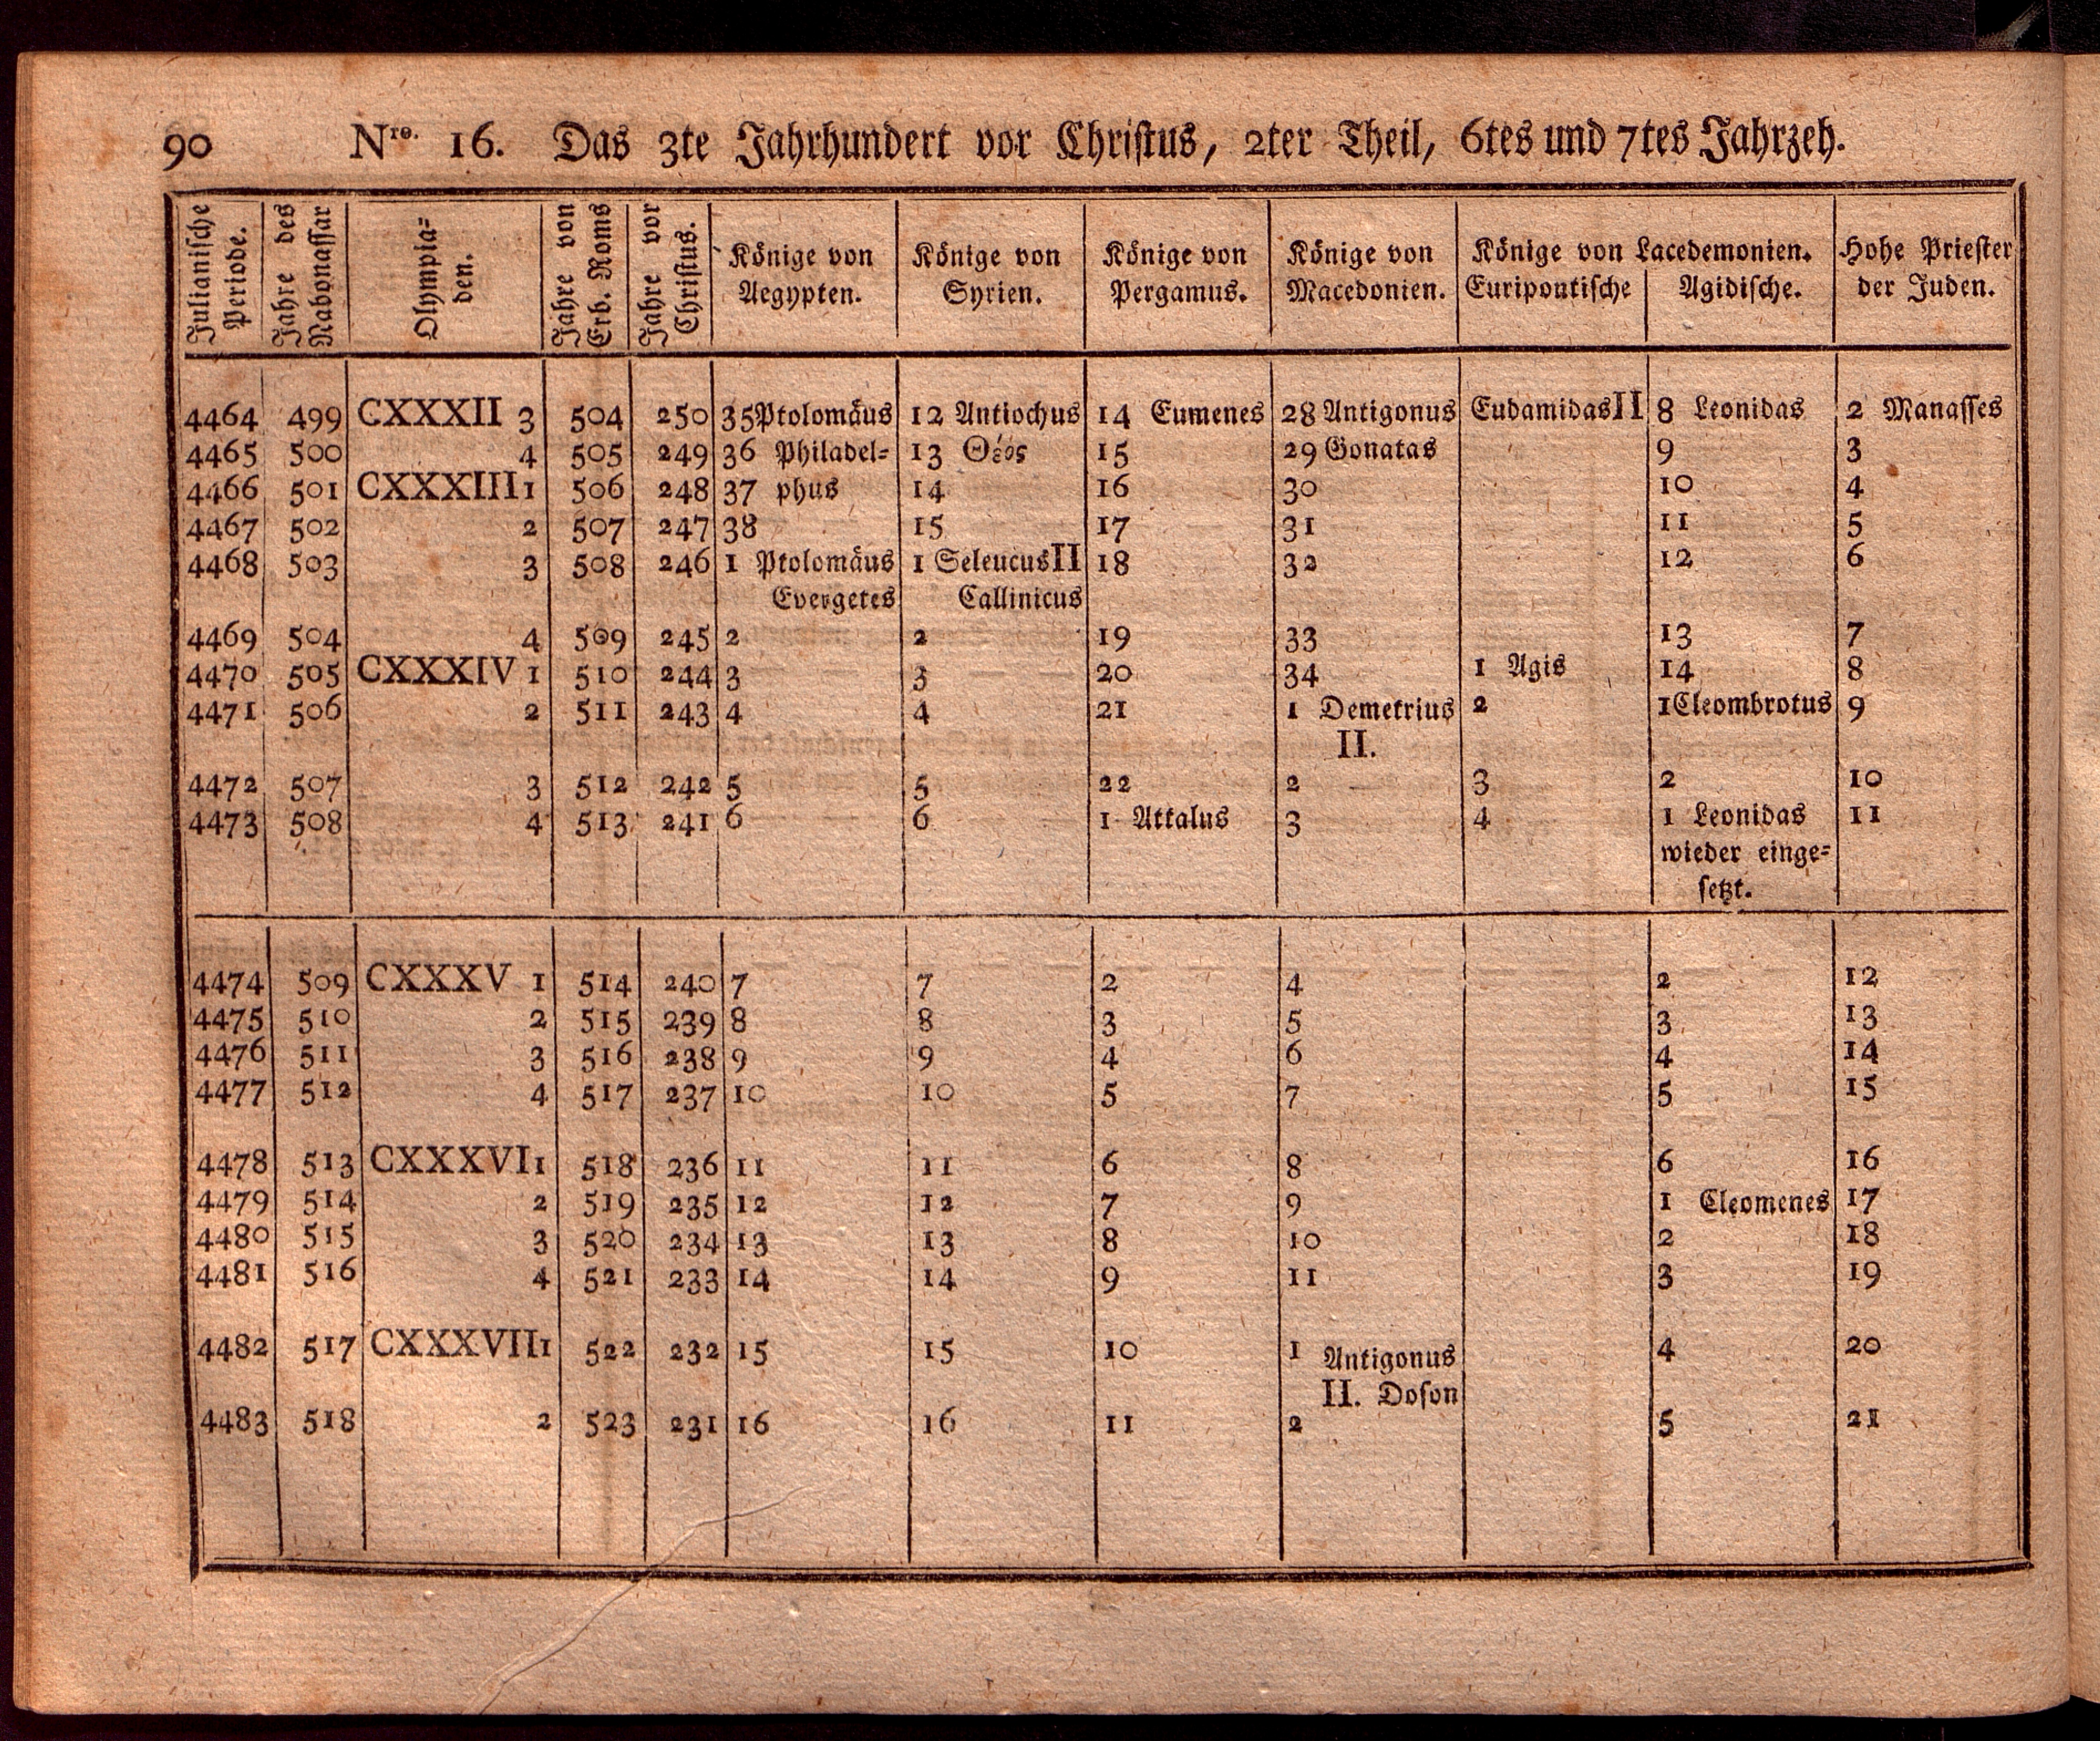 90 Nro. 16. Das 3te Jahrhundert vor Christus, 2ter Theil, 6tes und 7tes Jahrzeh.
Julianische Periode. Jahre des Nabonassar Olympia=den. Jahre von Erb. Roms Jahre vor Christus. Könige von Aegypten. Könige von Syrien. Könige von Pergamus. Könige von Macedonien. Könige von Lacedemonien. Euripontische Agidische. Hohe Priester der Juden.
4464 499 CXXXII 3 504 250 35 Ptolomäus 12 Antiochus 14 Eumenes 28 Antigonus Eudamidas II 8 Leonidas 2 Manasses
4465 500 4 505 249 36 Philadel= 13 Θέος 15 29 Gonatas 9 3
4466 501 CXXXIII 1 506 248 37 phus 14 16 30 10 4
4467 502 2 507 247 38 15 17 31 11 5
4468 503 3 508 246 1 Ptolomäus 1 Seleucus II 18 32 12 6
Evergetes Callinicus
4469 504 4 509 245 2 2 19 33 13 7
4470 505 CXXXIV 1 510 244 3 3 20 34 1 Agis 14 8
4471 506 2 511 243 4 4 21 1 Demetrius 2 1 Cleombrotus 9
II.
4472 507 3 512 242 5 5 22 2 3 2 10
4473 508 4 513 241 6 6 1 Attalus 3 4 1 Leonidas 11
wieder einge=
setzt.
4474 509 CXXXV 1 514 240 7 7 2 4 2 12
4475 510 2 515 239 8 8 3 5 3 13
4476 511 3 516 238 9 9 4 6 4 14
4477 512 4 517 237 10 10 5 7 5 15
4478 513 CXXXVI 1 518 236 11 11 6 8 6 16
4479 514 2 519 235 12 12 7 9 1 Cleomenes 17
4480 515 3 520 234 13 13 8 10 2 18
4481 516 4 521 233 14 14 9 11 3 19
4482 517 CXXXVII 1 522 232 15 15 10 1 Antigonus 4 20
II. Doson
4483 518 2 523 231 16 16 11 2 5 21